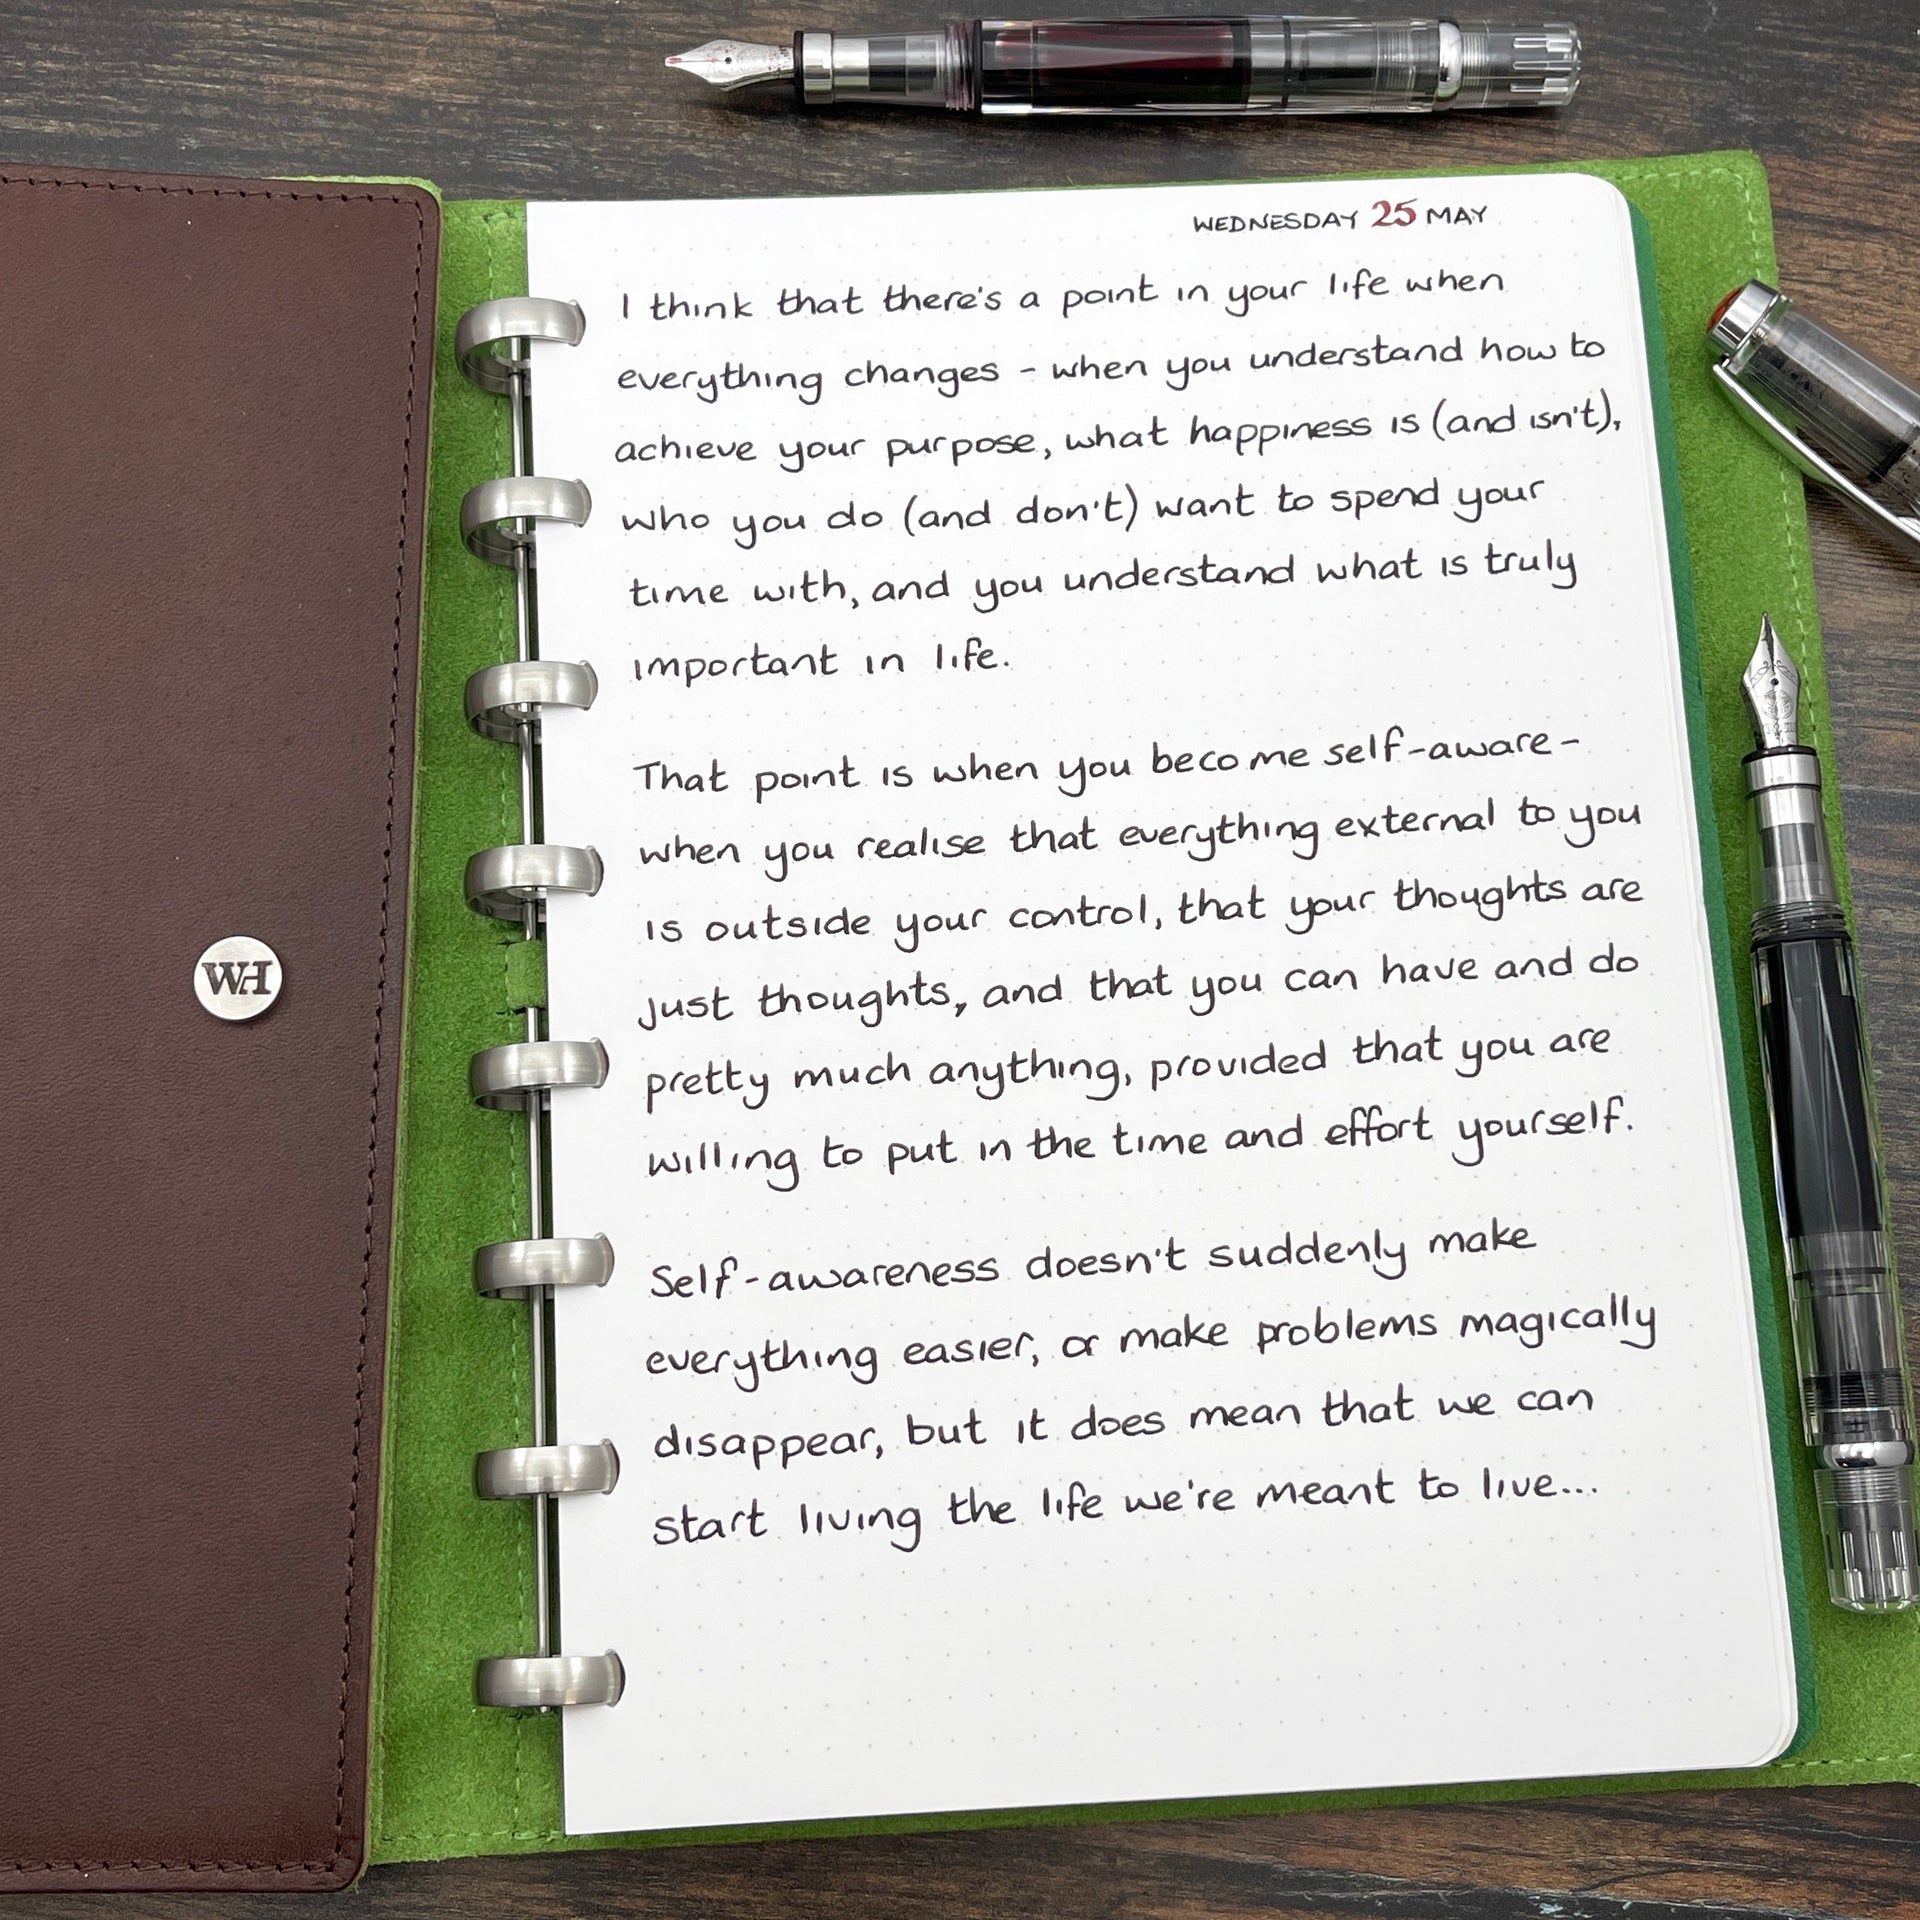 WEDNESDAY 25 MAY
I think that there's a point in your life when
everything changes - when you understand how to
achieve your purpose, what happiness is (and isn't),
who you do (and don't) want to spend your
time with, and you understand what is truly
important in life.
That point is when you become self-aware -
when you realise that everything external to you
is outside your control, that your thoughts are
just thoughts, and that you can have and do
pretty much anything, provided that you are
willing to put in the time and effort yourself.
Self-awareness doesn't suddenly make
everything easier, or make problems magically
disappear, but it does mean that we can
start living the life we're meant to live...
WH